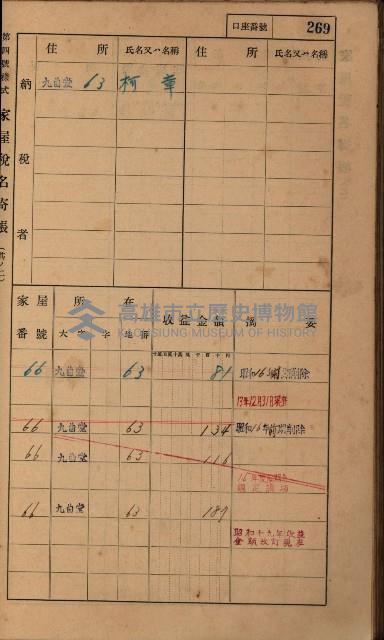 口座番號 269
第四號樣式 家屋稅名寄帳
納稅者
住所 氏名又ハ名稱 住所 氏名又ハ名稱
九曲堂 63 柯章
高雄市立歷史博物館
KAOHSIUNG MUSEUM OF HISTORY
家屋番號 家屋所在 大字 字 地番 收益金額 摘要
66 九曲堂 63 81 昭和16年 削除
13年12月31日現在
66 九曲堂 63 134 昭和16年 削除
66 九曲堂 63 116
16年
66 九曲堂 63 189
昭和十九年收益
金額改訂現在